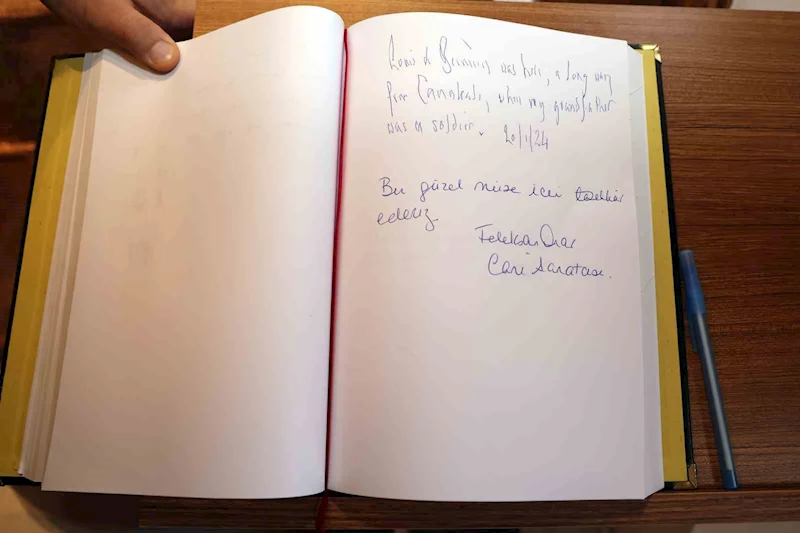 Louis de Bernières was here, a long way
from Canakkale, when my grandfather
was a soldier. 20/1/24
Bu güzel müze için teşekkür
ederiz
Feleksan Onar
Cani Sanatası.